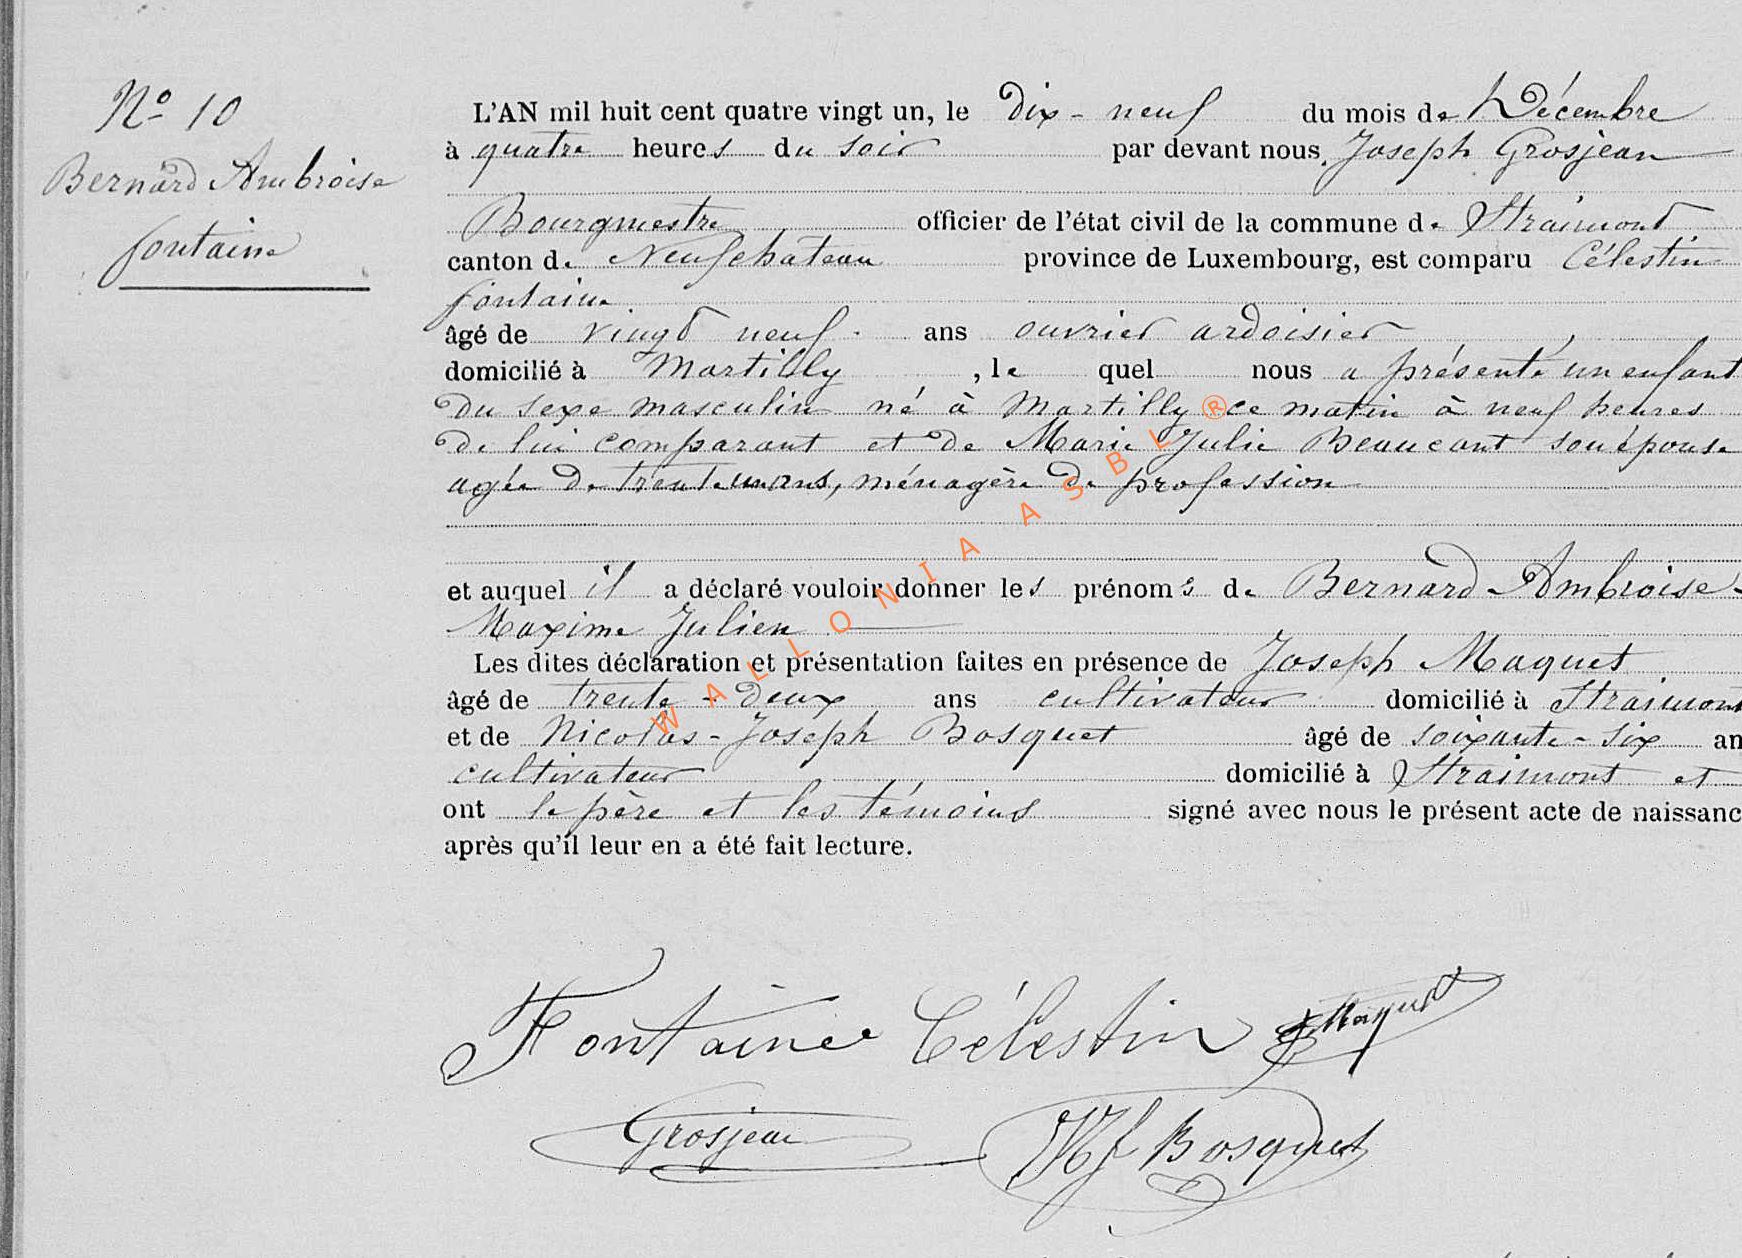 No 10
Bernard Ambroise
fontaine
L'AN mil huit cent quatre vingt un, le dix-neuf du mois de Décembre
à quatre heures du soir par devant nous, Joseph Grosjean
Bourgmestre officier de l'état civil de la commune de Straimont
canton de Neufchateau province de Luxembourg, est comparu Célestin
fontaine
âgé de vingt neuf ans ouvrier ardoisier
domicilié à Martilly, le quel nous a présenté un enfant
du sexe masculin né à Martilly ce matin à neuf heures
de lui comparant et de Marie Julie Beaucant son épouse
agée de trente un ans, ménagère de profession
et auquel il a déclaré vouloir donner les prénoms de Bernard-Ambroise-
Maxime Julien
Les dites déclaration et présentation faites en présence de Joseph Maquet
âgé de trente-deux ans cultivateur domicilié à Straimont
et de Nicolas-Joseph Bosquet âgé de soixante-six an
cultivateur domicilié à Straimont et
ont le père et les témoins signé avec nous le présent acte de naissanc
après qu'il leur en a été fait lecture.
Fontaine Célestin J Maquet
Grosjean NJ Bosquet
WALLONIA ASBL ®